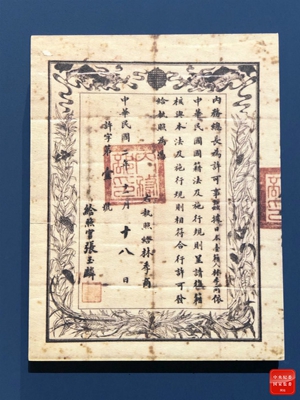 內務總長為許可事茲據日本臺籍林季商依
中華民國國籍法及施行規則呈請復籍
核與本法及施行規則相符合行許可發
給執照為憑
右執照給林季商
中華民國 年 月十八日
許字第壹號
給照官張玉麟